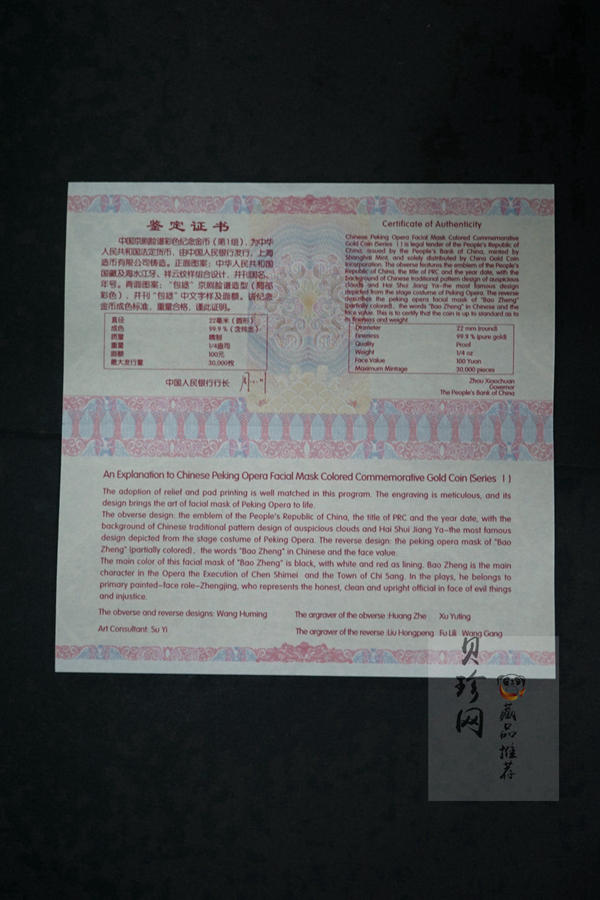 鉴定证书
中国京剧脸谱彩色纪念金币（第1组），为中华
人民共和国法定货币，由中国人民银行发行，上海
造币有限公司铸造。正面图案：中华人民共和国
国徽及海水江牙、祥云纹样组合设计，并刊国名、
年号。背面图案：“包拯”京剧脸谱造型（局部
彩色），并刊“包拯”中文字样及面额。该纪念
金币成色标准，重量合格，谨此证明。
直径 22毫米（圆形）
成色 99.9％（含纯金）
质量 精制
重量 1/4盎司
面额 100元
最大发行量 30,000枚
中国人民银行行长
Certificate of Authenticity
Chinese Peking Opera Facial Mask Colored Commemorative
Gold Coin (Series Ⅰ) is legal tender of the People's Republic of
China, issued by the People's Bank of China, minted by
Shanghai Mint, and solely distributed by China Gold Coin
Incorporation. The obverse features the emblem of the People's
Republic of China, the title of PRC and the year date, with the
background of Chinese traditional pattern design of auspicious
clouds and Hai Shui Jiang Ya-the most famous design
depicted from the stage costume of Peking Opera. The reverse
describes the peking opera mask of "Bao Zheng"
(partially colored), the words "Bao Zheng" in Chinese and the
face value. This is to certify that the coin is up to standard as to
its fineness and weight.
Diameter 22 mm (round)
Fineness 99.9 % (pure gold)
Quality Proof
Weight 1/4 oz
Face Value 100 Yuan
Maximum Mintage 30,000 pieces
Zhou Xiaochuan
Governor
The People's Bank of China
An Explanation to Chinese Peking Opera Facial Mask Colored Commemorative Gold Coin (Series Ⅰ)
The adoption of relief and pad printing is well matched in this program. The engraving is meticulous, and its
design brings the art of facial mask of Peking Opera to life.
The obverse design: the emblem of the People's Republic of China, the title of PRC and the year date, with the
background of Chinese traditional pattern design of auspicious clouds and Hai Shui Jiang Ya-the most famous
design depicted from the stage costume of Peking Opera. The reverse design: the peking opera mask of "Bao
Zheng" (partially colored), the words "Bao Zheng" in Chinese and the face value.
The main color of this facial mask of "Bao Zheng" is black, with white and red as lining. Bao Zheng is the main
character in the Opera the Execution of Chen Shimei and the Town of Chi Sang. In the plays, he belongs to
primary painted-face role-Zhengjing, who represents the honest, clean and upright official in face of evil things
and injustice.
The obverse and reverse designs: Wang Huming The argraver of the obverse :Huang Zhe Xu Yuting
Art Consultant: Su Yi The argraver of the reverse :Liu Hongpeng Fu Lili Wang Gang
贝珍网
藏品推荐